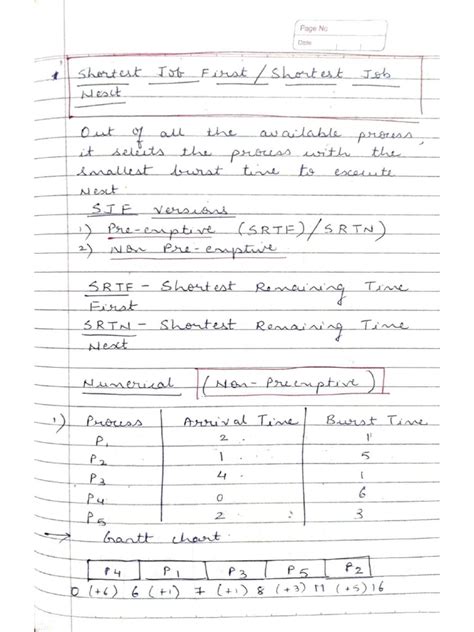 Page No
Date
Shortest Job First / Shortest Job
Next
Out of all the available process,
it selects the process with the
smallest burst time to execute
Next.
SJF versions
1) Pre-emptive (SRTF)/SRTN)
2) Non Pre-emptive
SRTF - Shortest Remaining Time
First
SRTN - Shortest Remaining Time
Next
Numerical (Non-Preemptive)
1) Process Arrival Time Burst Time
P1 2 1
P2 1 5
P3 4 1
P4 0 6
P5 2 3
→ Gantt chart
P4 P1 P3 P5 P2
0 (+6) 6 (+1) 7 (+1) 8 (+3) 11 (+5) 16